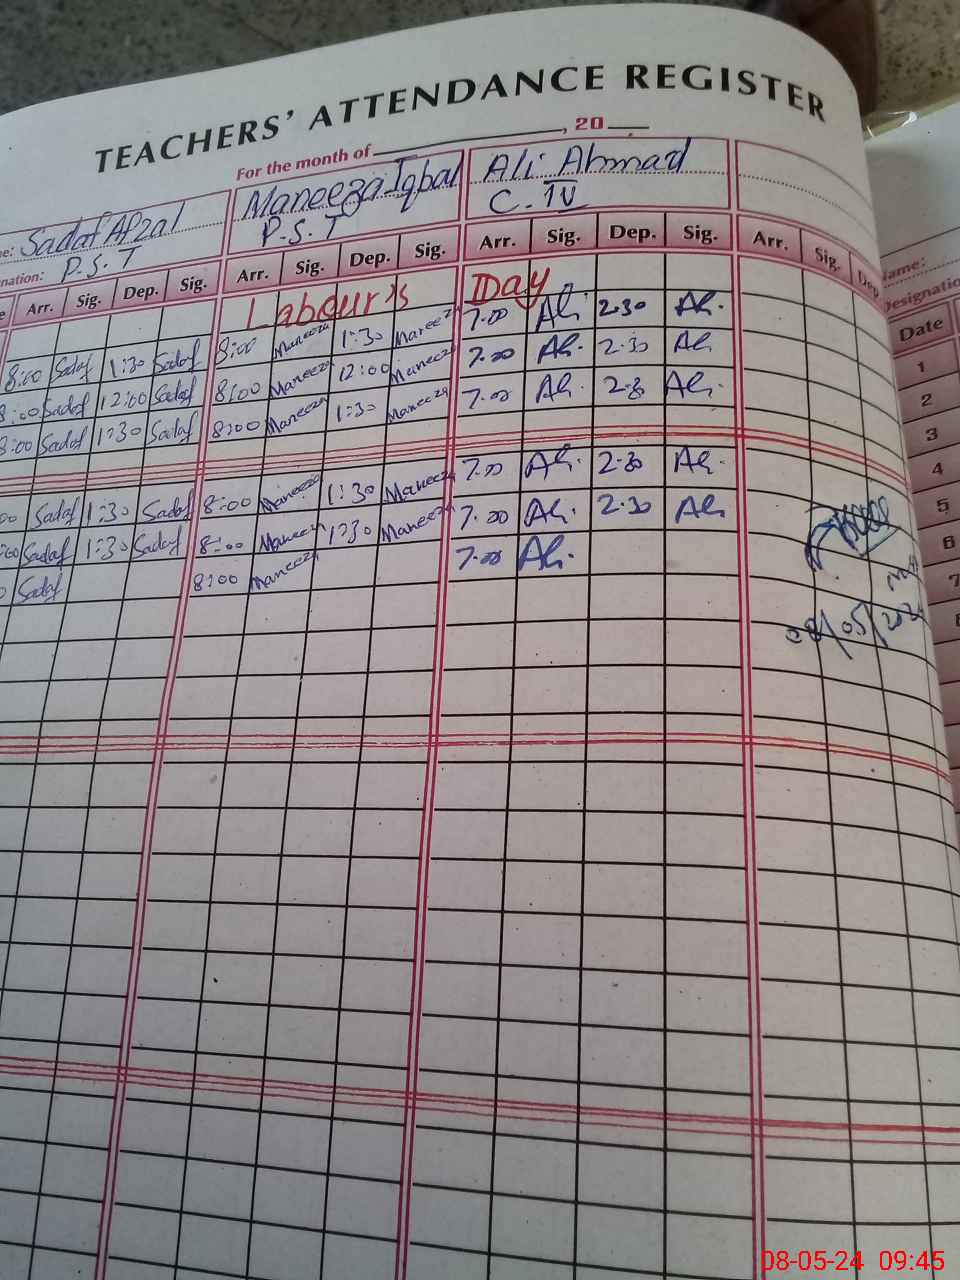 TEACHERS' ATTENDANCE REGISTER
For the month of , 20
Sadaf Afzal Maneeza Iqbal Ali Ahmad
nation: P.S.T P.S.T C. IV
Arr. Sig. Dep. Sig. Arr. Sig. Dep. Sig. Arr. Sig. Dep. Sig. Arr. Sig. Dep
Labour's Day
8:00 Sadaf 1:30 Sadaf 8:00 Maneeza 1:30 Maneeza 7.00 Ali 2.30 Ali
8:00 Sadaf 12:00 Sadaf 8:00 Maneeza 12:00 Maneeza 7.00 Ali 2.30 Ali
8:00 Sadaf 1:30 Sadaf 8:00 Maneeza 1:30 Maneeza 7.00 Ali 2.30 Ali
00 Sadaf 1:30 Sadaf 8:00 Maneeza 1:30 Maneeza 7.00 Ali 2.30 Ali
:00 Sadaf 1:30 Sadaf 8:00 Maneeza 1:30 Maneeza 7.00 Ali 2.30 Ali
0 Sadaf 8:00 Maneeza 7.00 Ali
08/05/202
ame:
Designatio
Date
1
2
3
4
5
6
7
8
08-05-24 09:45